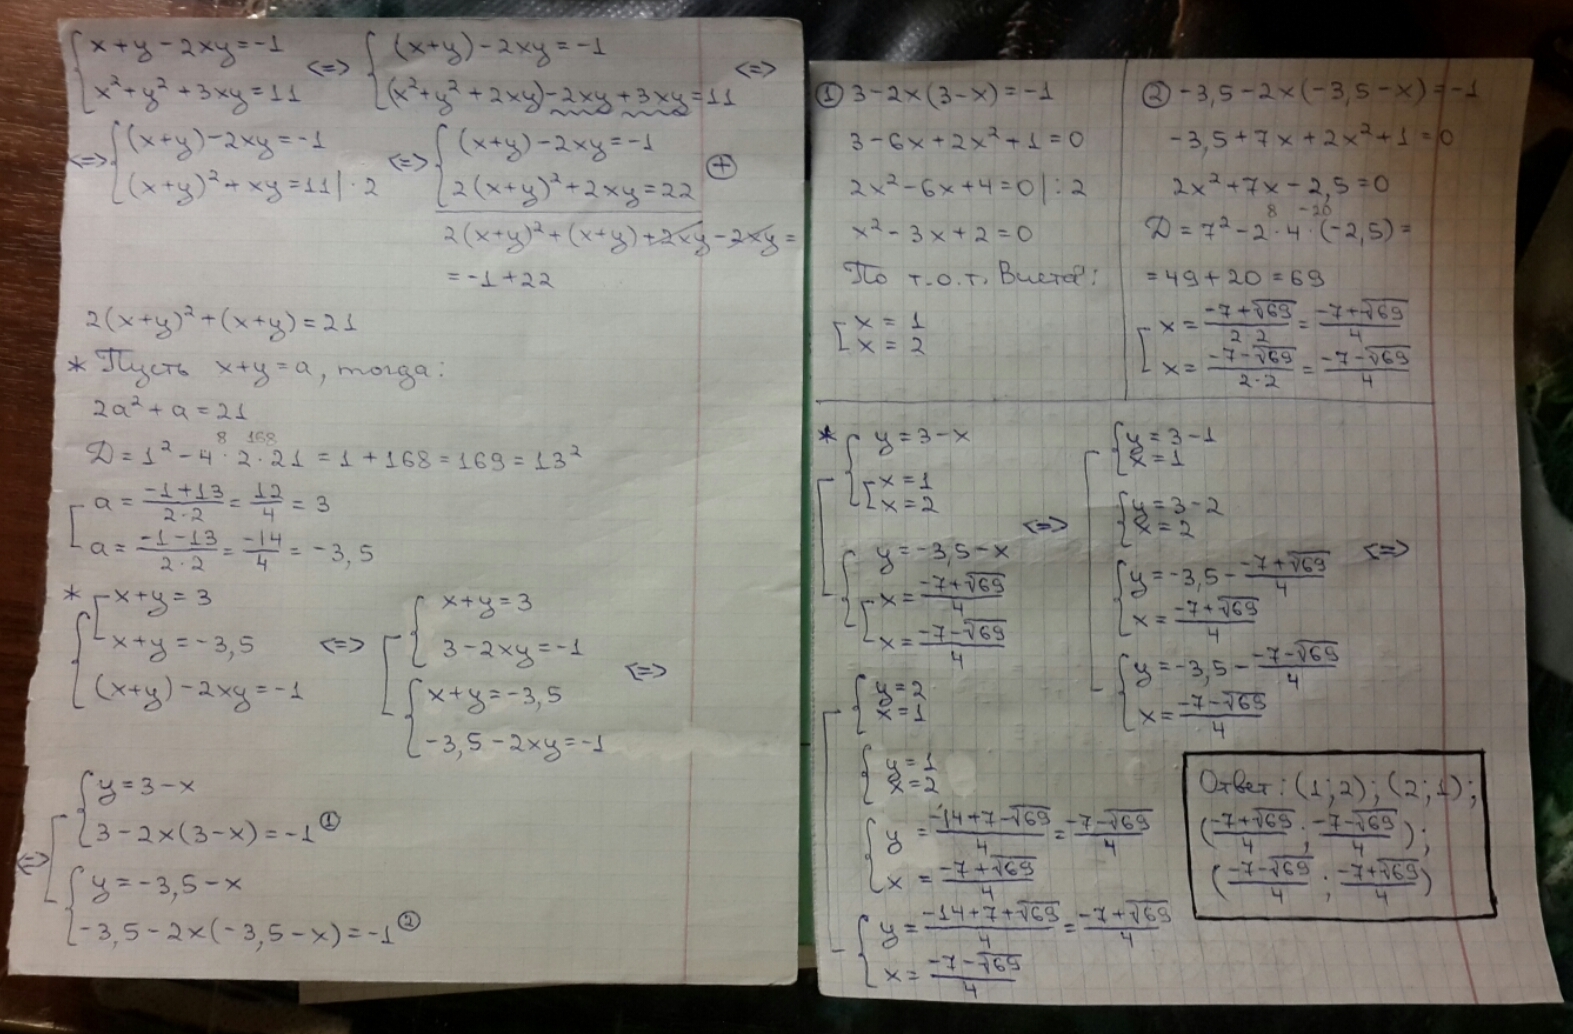 { x+y-2xy=-1
x²+y²+3xy=11 <=> { (x+y)-2xy=-1
(x²+y²+2xy)-2xy+3xy=11 <=>
<=> { (x+y)-2xy=-1
(x+y)²+xy=11|·2 <=> { (x+y)-2xy=-1
2(x+y)²+2xy=22 ⊕
2(x+y)²+(x+y)+2xy-2xy=
=-1+22
2(x+y)²+(x+y)=21
* Пусть x+y=a, тогда:
2a²+a=21
8 168
D=1²-4·2·21=1+168=169=13²
[ a=(-1+13)/(2·2)=12/4=3
a=(-1-13)/(2·2)=-14/4=-3,5
* { [ x+y=3
x+y=-3,5
(x+y)-2xy=-1 <=> [ { x+y=3
3-2xy=-1
{ x+y=-3,5
-3,5-2xy=-1 <=>
<=> [ { y=3-x
3-2x(3-x)=-1 ①
{ y=-3,5-x
-3,5-2x(-3,5-x)=-1 ②
① 3-2x(3-x)=-1
3-6x+2x²+1=0
2x²-6x+4=0|:2
x²-3x+2=0
По т.о.т. Виета:
[ x=1
x=2
② -3,5-2x(-3,5-x)=-1
-3,5+7x+2x²+1=0
2x²+7x-2,5=0
8 -20
D=7²-2·4·(-2,5)=
=49+20=69
[ x=(-7+√69)/(2·2)=(-7+√69)/4
x=(-7-√69)/(2·2)=(-7-√69)/4
* [ { y=3-x
[ x=1
x=2
{ y=-3,5-x
[ x=(-7+√69)/4
x=(-7-√69)/4
<=> [ { y=3-1
x=1
{ y=3-2
x=2
{ y=-3,5-(-7+√69)/4
x=(-7+√69)/4
{ y=-3,5-(-7-√69)/4
x=(-7-√69)/4 <=>
[ { y=2
x=1
{ y=1
x=2
{ y=(-14+7-√69)/4=(-7-√69)/4
x=(-7+√69)/4
{ y=(-14+7+√69)/4=(-7+√69)/4
x=(-7-√69)/4
Ответ: (1;2);(2;1);
((-7+√69)/4;(-7-√69)/4);
((-7-√69)/4;(-7+√69)/4)